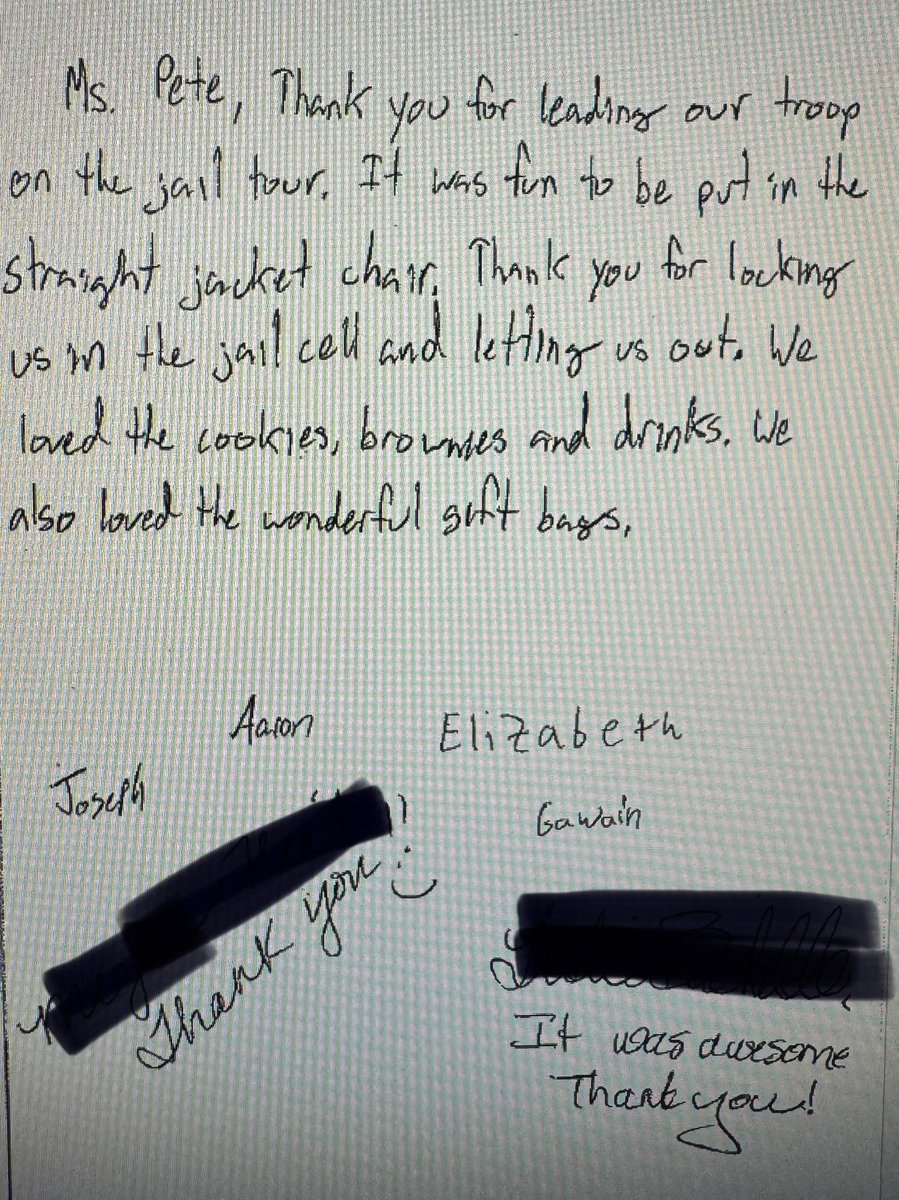 Ms. Pete, Thank you for leading our troop
on the jail tour. It was fun to be put in the
straight jacket chair. Thank you for locking
us in the jail cell and letting us out. We
loved the cookies, brownies and drinks. We
also loved the wonderful gift bags.
Aaron
Elizabeth
Joseph
Gawain
Thank you!
It was awesome
Thank you!